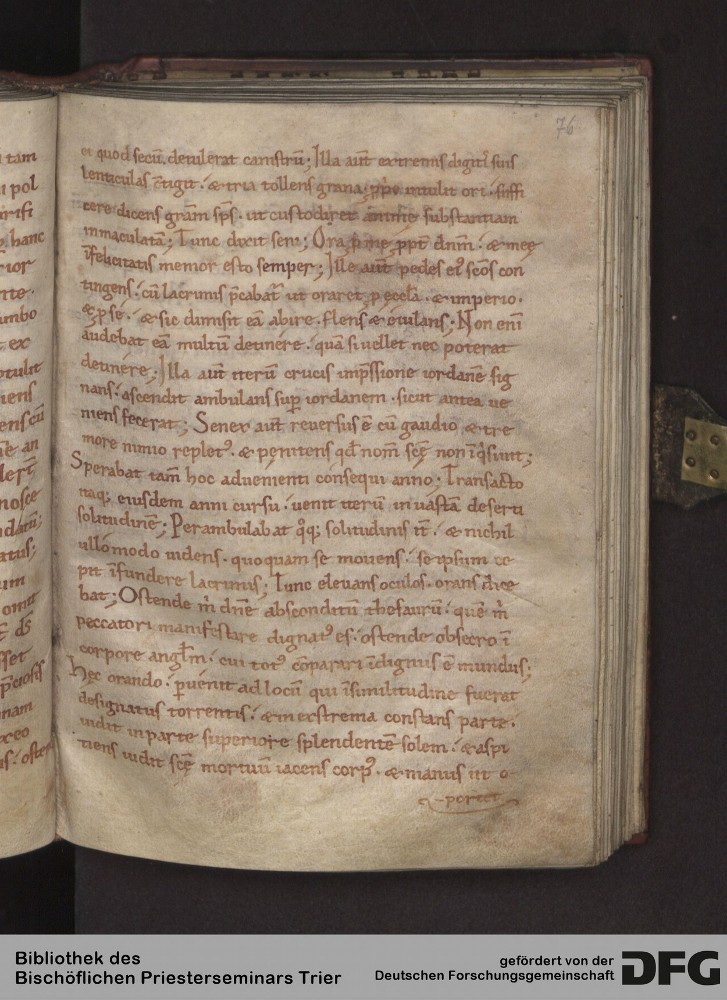 tam
pol
hanc
ex
an
nosce
ds
sset
nam
76
et quod secū detulerat canistrū; Illa aūt extremis digitis suis
lenticulas ctigit. & tria tollens grana, ppō intulit ori. suffi
cere dicens gram sps. ut custodiret anime substantiam
inmaculatā; Tunc dixit seni; Ora, p me, ppt dnm. & meę
īfelicitatis memor esto semper; Ille aūt pedes ei' scōs con
tingens. cū lacrimis pcabat' ut oraret, p eccla. & imperio.
& p se. & sic dimisit eā abire. flens & eiulans; Non eni
audebat eā multū detinere. quā si uellet nec poterat
detinere; Illa aūt iterū crucis imp̄ssione iordanē sig
nans. ascendit ambulans sup iordanem. sicut antea ue
niens fecerat; Senex aūt reuersus ē cū gaudio & tre
more nimio replet'. & penitens qd nom̄ scę non īq̄siuit;
Sperabat tam̄ hoc aduenienti consequi anno; Transacto
itaq; eiusdem anni cursu. uenit iterū in uastā deserti
solitudinē; Perambulabat q̊q; solitudinis it̄. & nichil
ullomodo uidens. quoquam se mouens. se ipsum ce
pit īfundere lacrimis; Tunc eleuans oculos. orans dice
bat; Ostende m̄ dn̄e absconditū thesaurū. quē m̄
peccatori manifestare dignat' es. ostende obsecro ī
corpore angl̄m. cui tot' cōparari īdignus ē mundus;
Hec orando. puenit ad locū qui īsimilitudine fuerat
designatus torrentis. & in extrema constans parte.
uidit in parte superiore splendentē solem. & aspi
tiens uidit scę mortuū iacens corp'. & manus ut o
-portet
Bibliothek des
Bischöflichen Priesterseminars Trier
gefördert von der
Deutschen Forschungsgemeinschaft
DFG